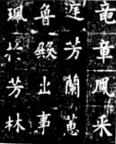 竜章鳳采
芳蘭蕙
魯殿出事
珮於芳林